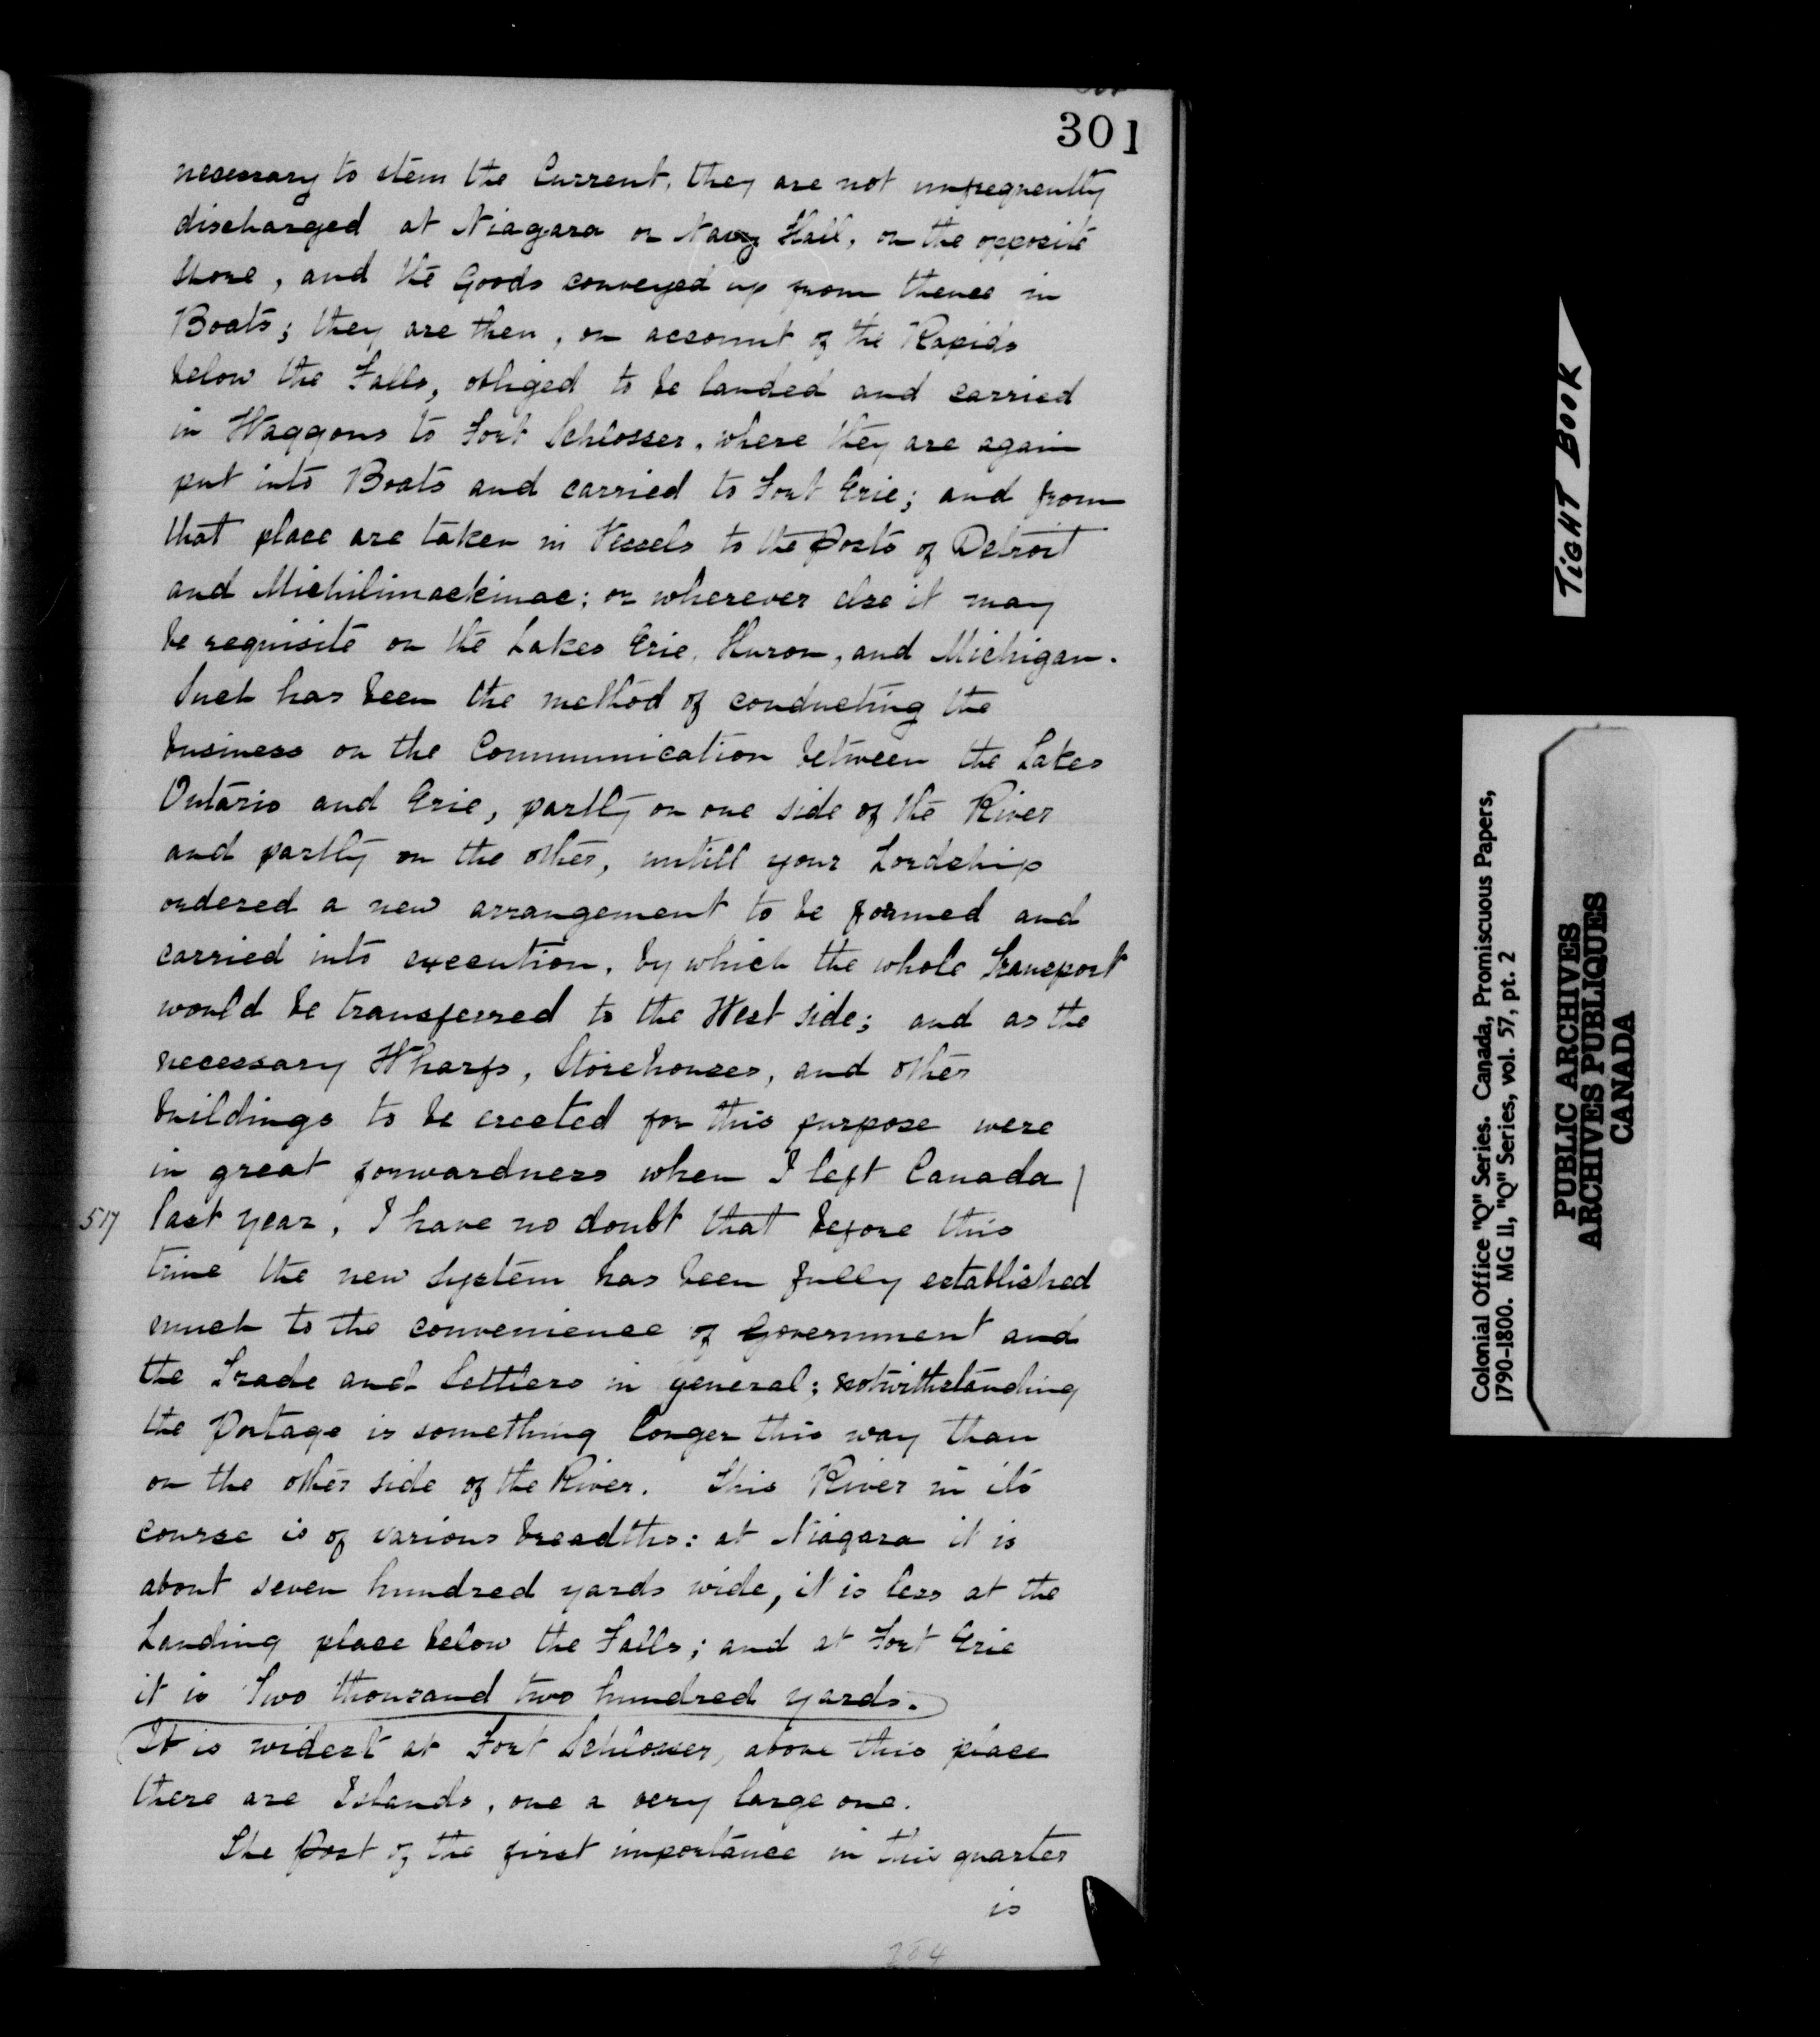 301
necessary to stem the Current, they are not unfrequently
discharged at Niagara or Navy Hall, on the opposite
shore, and the Goods conveyed up from thence in
Boats; they are then, on account of the Rapids
below the Falls, obliged to be landed and carried
in Waggons to Fort Schlosser, where they are again
put into Boats and carried to Fort Erie; and from
that place are taken in Vessels to the Posts of Detroit
and Michilimackinac; or wherever else it may
be requisite on the Lakes Erie, Huron, and Michigan.
Such has been the method of conducting the
business on the Communication between the Lakes
Ontario and Erie, partly on one side of the River
and partly on the other, untill your Lordship
ordered a new arrangement to be formed and
carried into execution, by which the whole Transport
would be transferred to the West side; and as the
necessary Wharfs, Storehouses, and other
buildings to be erected for this purpose were
in great forwardness when I left Canada /
517 last year, I have no doubt that before this
time the new System has been fully established
much to the convenience of Government and
the Trade and Settlers in general; notwithstanding
the Portage is something longer this way than
on the other side of the River. This River in its
course is of various breadths: at Niagara it is
about seven hundred yards wide, it is less at the
Landing place below the Falls; and at Fort Erie
it is Two thousand two hundred yards.
It is widest at Fort Schlosser, above this place
there are Islands, one a very large one.
The Post of the first importance in this quarter
is
284
TIGHT BOOK
Colonial Office "Q" Series. Canada, Promiscuous Papers,
1790-1800. MG 11, "Q" Series, vol. 57, pt. 2
PUBLIC ARCHIVES
ARCHIVES PUBLIQUES
CANADA